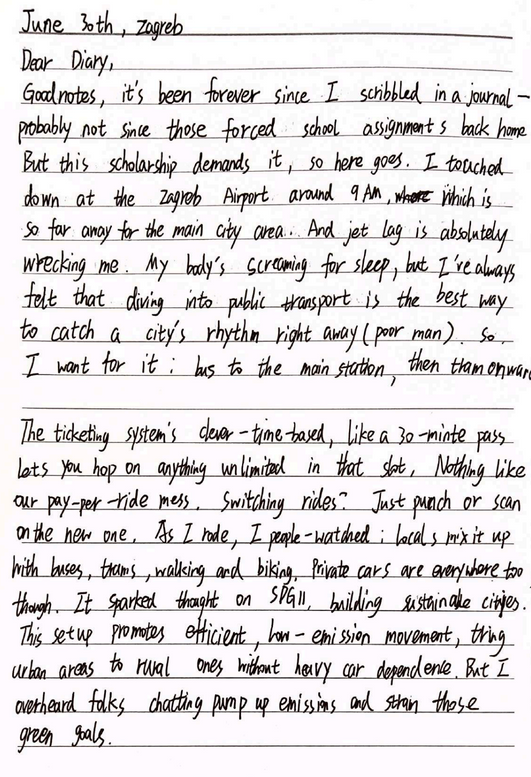 June 30th, Zagreb
Dear Diary,
Goodnotes, it's been forever since I scribbled in a journal-
probably not since those forced school assignments back home
But this scholarship demands it, so here goes. I touched
down at the Zagreb Airport around 9 AM, where which is
so far away for the main city area. And jet lag is absolutely
wrecking me. My body's screaming for sleep, but I've always
felt that diving into public transport is the best way
to catch a city's rhythm right away (poor man). So.
I want for it: bus to the main station, then tram onward
The ticketing system's clever-time-based, like a 30-minte pass
lets you hop on anything unlimited in that slot, Nothing like
our pay-per-ride mess. Switching rides? Just punch or scan
on the new one. As I rode, I people-watched; locals mix it up
with buses, trams, walking and biking, Private cars are everywhere too
though. It sparked thought on SDG11, building cities.
This setup promotes efficient, low-emission movement,
urban areas to rival ones without heavy car dependence. But I
overheard folks chatting pump up emissions and strain those
green goals.